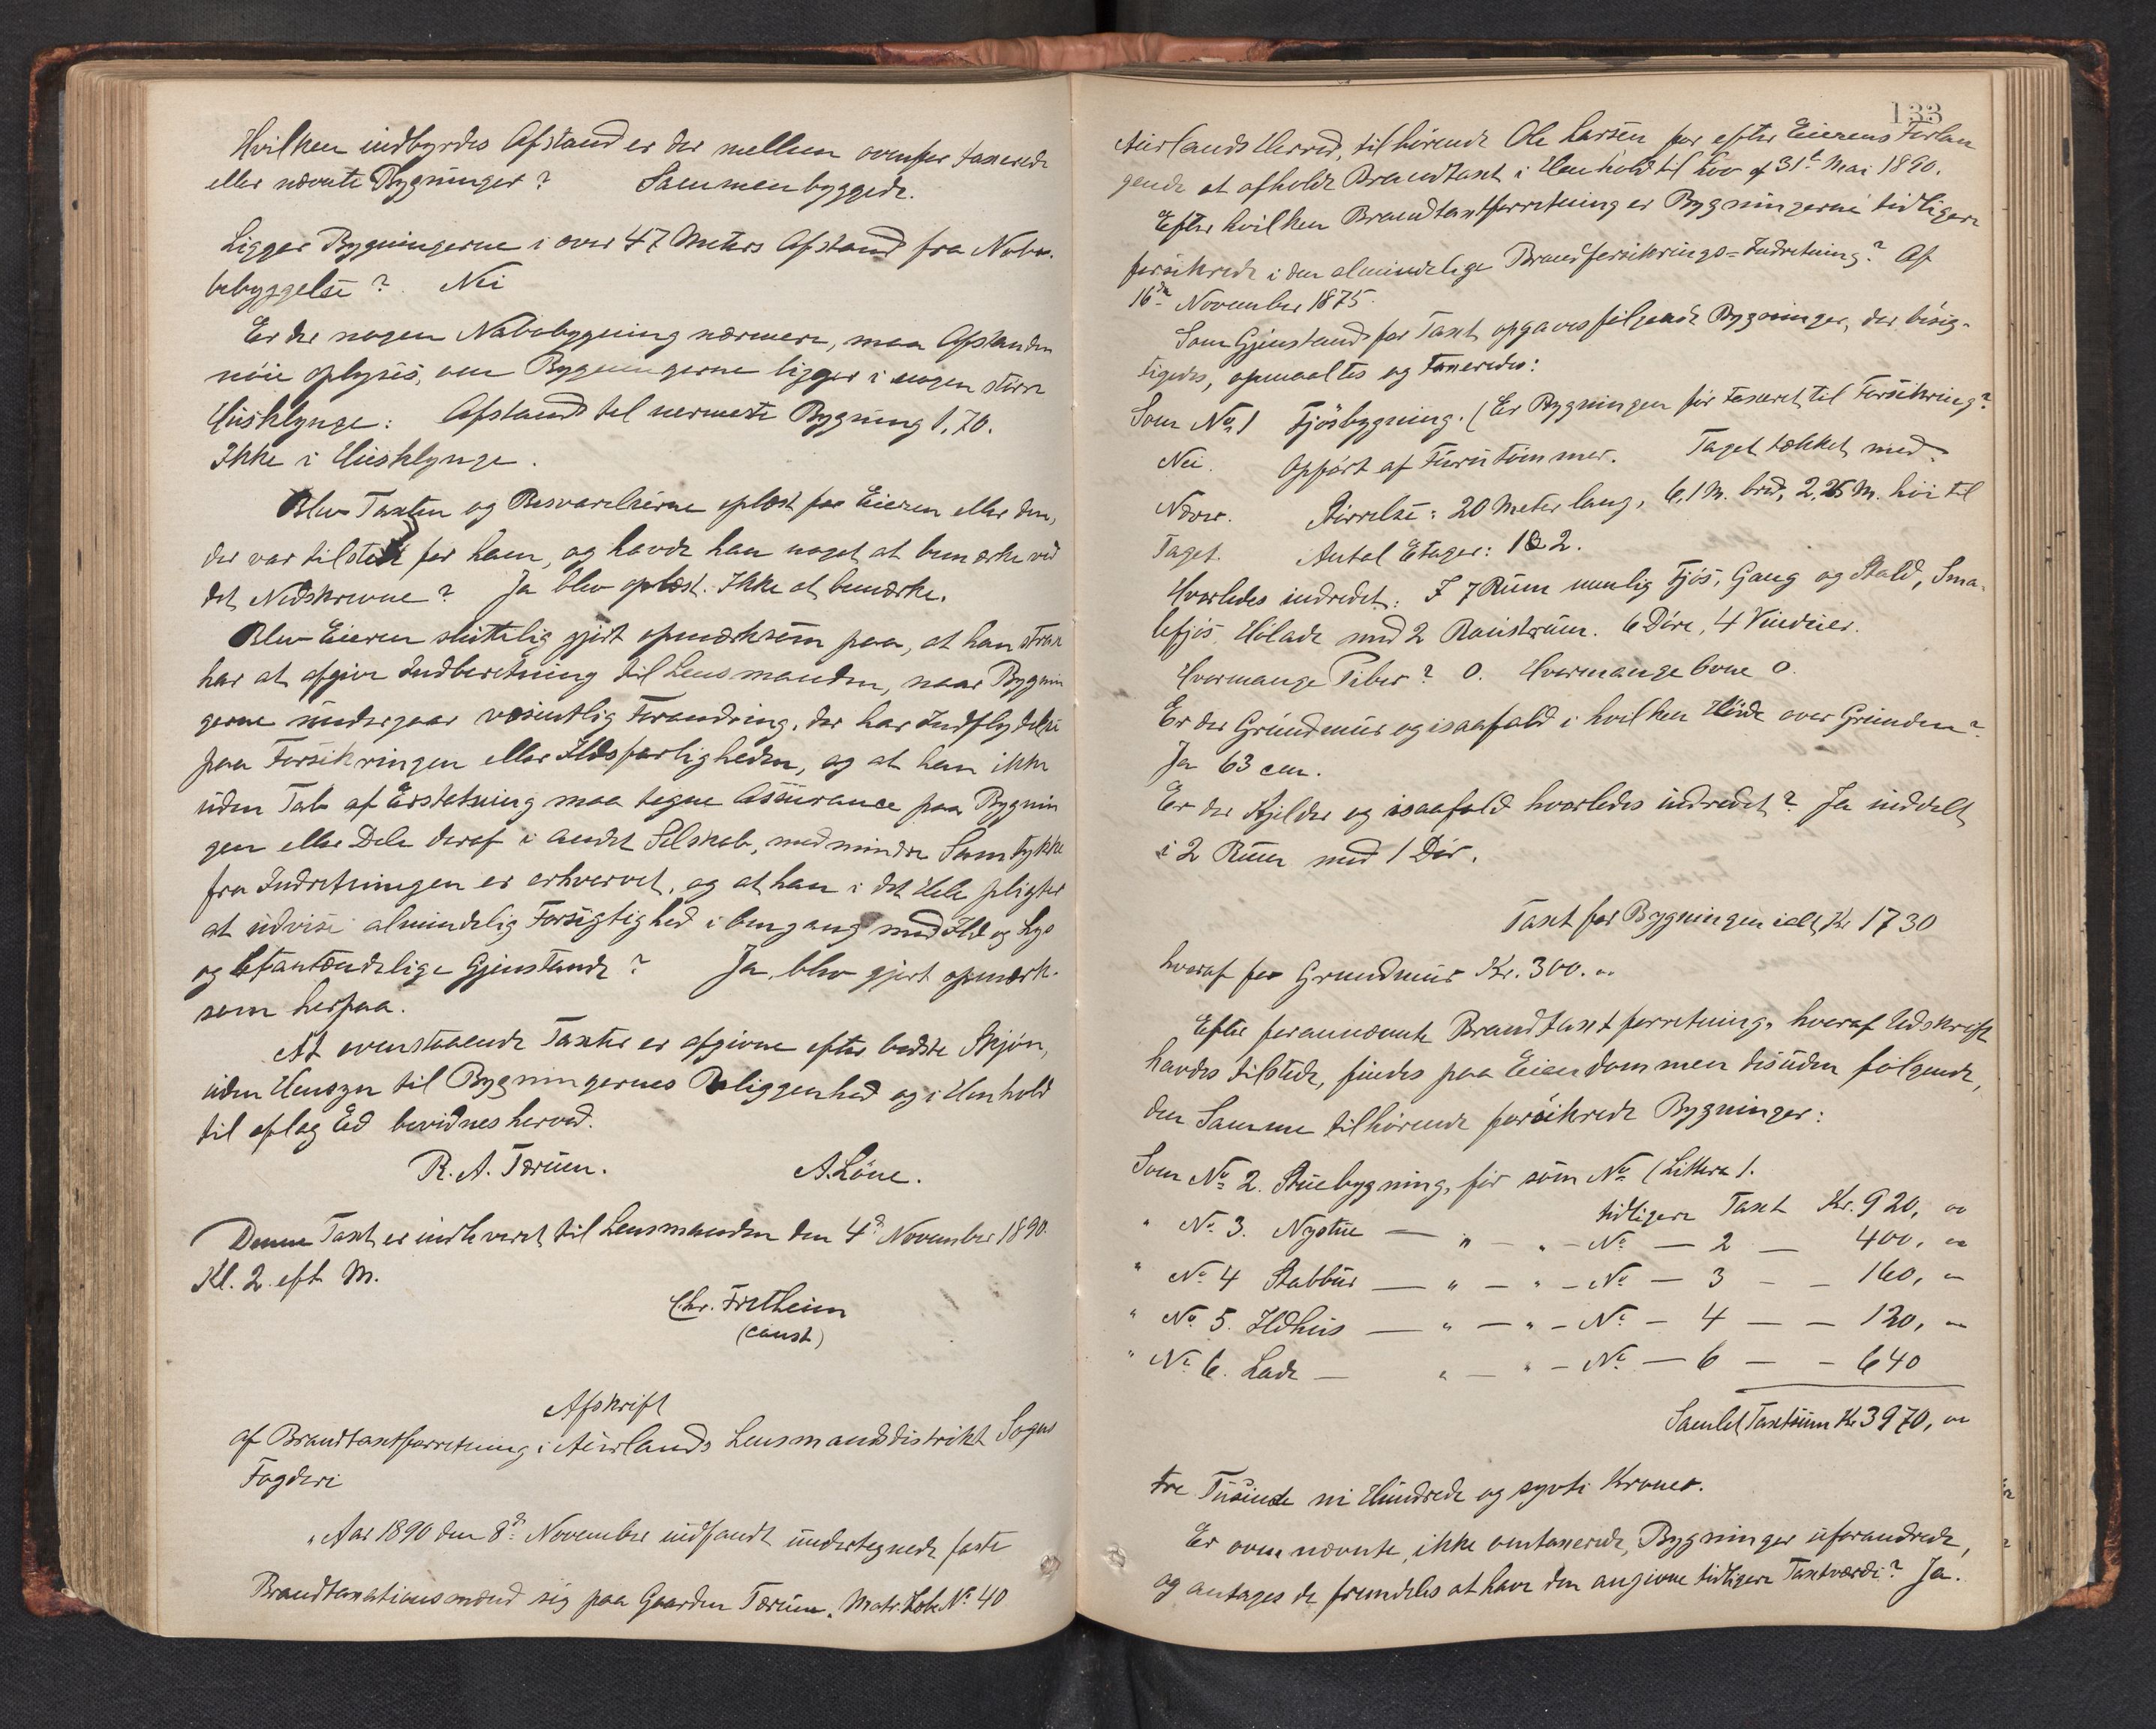 Hvilken indbyrdes Afstand er der mellem ovenfor taxerede
eller nævnte Bygninger? Sammenbyggede.
Ligger Bygningerne i over 47 Meters Afstand fra Nabo-
bebyggelse? Nei
Er der nogen Nabobygning nærmere, maa Afstanden
nöie oplyses, om Bygningerne ligger i nogen större
Husklynge: Afstand til nærmeste Bygning 1,70.
Ikke i Husklynge.
Blev Taxten og Besvarelserne oplæst for Eieren eller den,
der var tilstede for ham, og havde han noget at bemærke ved
det Nedskrevne? Ja blev oplæst. Ikke at bemærke.
Blev Eieren skittelig gjort opmærksom paa, at han strax
har at afgive Indberetning til Lensmanden, naar Bygnin
gerne undergaar væsentlig Forandring, der har Indflydelse
paa Forsikringen eller Ildsfarligheden, og at han ikke
uden Tab af Erstatning maa tegne Assurance paa Bygnin
gen eller Dele deraf i andet Selskab, medmindre Samtykke
fra Indretningen er erhvervet, og at han i det Hele pligter
at udvise almindelig Forsigtighed i Omgang med Ild og Lys
og letantændelige Gjenstande? Ja, blev gjort opmærk-
som herpaa.
At ovenstaaende Taxter er afgivne efter bedste Skjön,
uden Hensyn til Bygningernes Beliggenhed og i Henhold
til aflag Ed bevidnes herved.
R. A. Tærum. A. Löne.
Denne Taxt er indleveret til Lensmanden den 4d November 1890.
Kl. 2 eft. M.
Chr. Fretheim
(const)
Afskrift
af Brandtaxtforretning i Aurlands Lensmandsdistrikt Sogns
Fogderi
"Aar 1890 den 8d November indfandt undertegnede faste
Brandtaxationsmænd sig paa Gaarden Tærum, Matr. Löbe No 40
133
Aurlands Herred, tilhörende Ole Larsen for efter Eierens Forlan
gende at afholde Brandtaxt i Henhold til Lov af 31t Mai 1890.
Efter hvilken Brandtaxtforretning er Bygningerne tidligere
forsikrede i den almindelige Brandforsikrings-Indretning? Af
16de November 1875.
Som Gjenstand for Taxt opgaves fölgende Bygninger, der besig-
tigedes, opmaaltes og taxeredes:
Som No 1 Fjösbygning. (Er Bygningen för taxeret til Forsikring?
Nei. Opfört af Furutömmer. Taget tækket med
Næver. Störrelse: 20 Meter lang, 6,1 M. bred, 2,25 M. höi til
Taget. Antal Etager: 1 & 2.
Hvorledes indredet: I 7 Rum nemlig Fjös, Gang og Stald, Sma-
lefjös, Hölade med 2 Rum. 6 Döre, 4 Vinduer.
Hvormange Piber? 0. Hvormange Ovne 0.
Er der Grundmur og isaafald i hvilken Höide over Grunden?
Ja 63 cm.
Er der Kjelder og isaafald hvorledes indredet? Ja inddelt
i 2 Rum med 1 Dör.
Taxt for Bygningen ialt Kr 1730
hvoraf for Grundmur Kr. 300. "
Efter forannævnte Brandtaxtforretning, hvoraf Udskrift
havdes tilstede, findes paa Eiendommen desuden fölgende,
den Samme tilhörende forsikrede Bygninger:
Som No 2. Stuebygning, för som No (Littera) 1.
tidligere Taxt Kr. 920, "
" No 3. Nystue — " — " — No — 2 — 400, "
" No 4 Stabbur — " — " — No — 3 — — 160, "
" No 5. Ildhus — " — " — No — 4 — — 120, "
" No 6. Lade — " — " — No — 6 — — 640
Samlet Taxtsum Kr 3970, "
tre Tusinde ni Hundrede og sytti Kroner.
Er ovennævnte, ikke omtaxerede, Bygninger uforandrede,
og antages de fremdeles at have den angivne tidligere Taxtværdi? Ja.